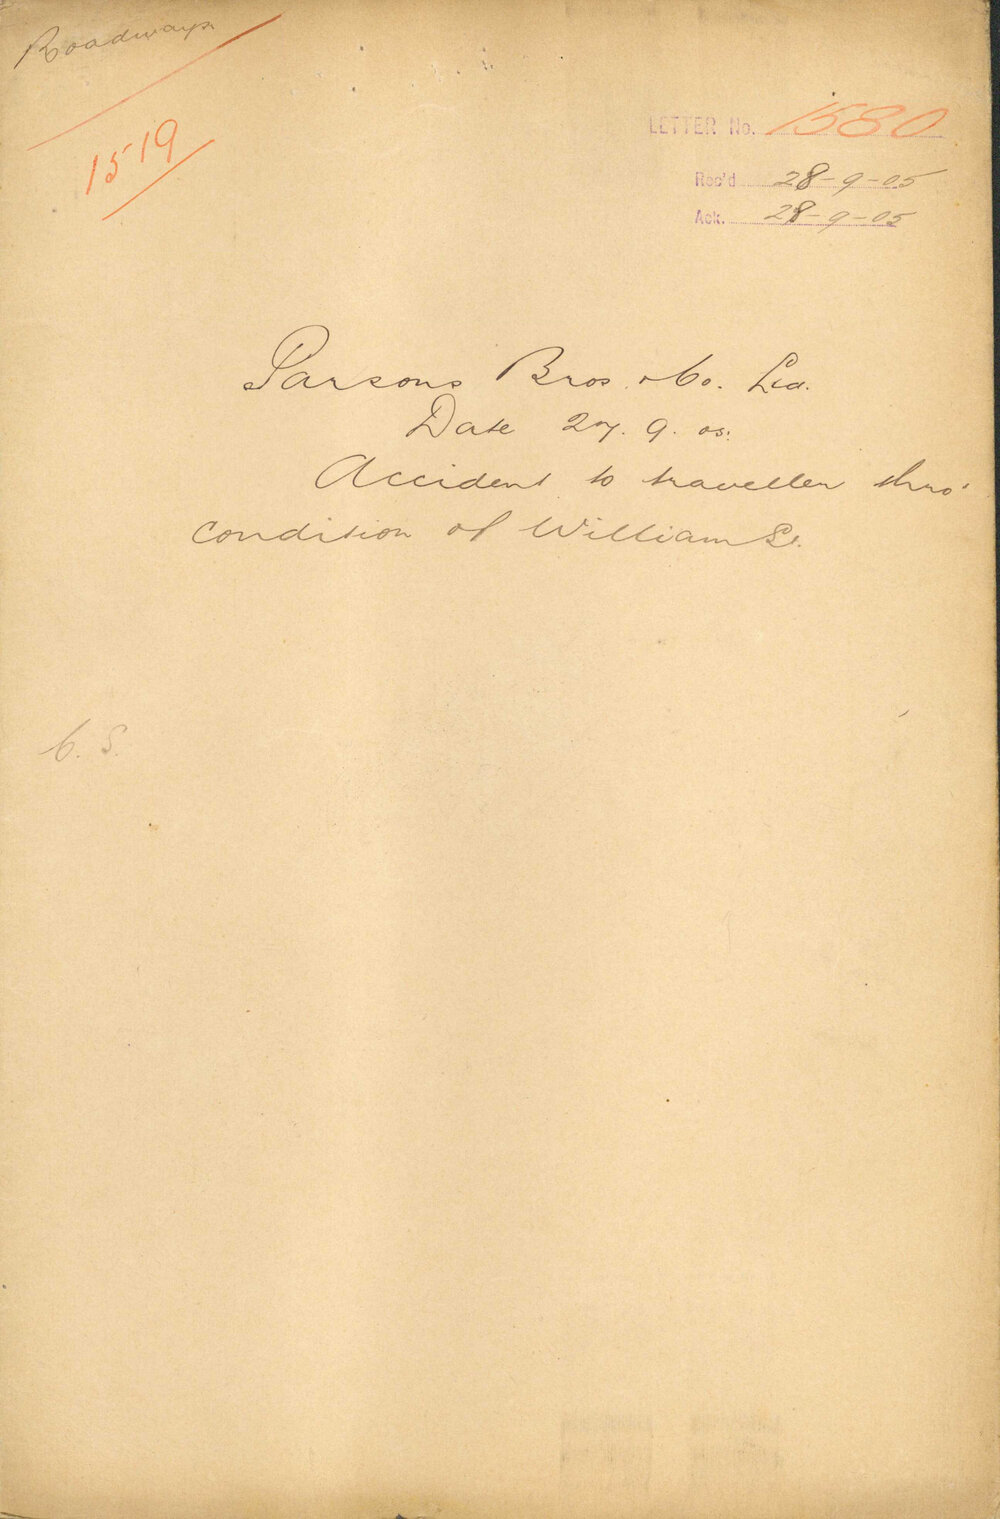 Roadways
1519
LETTER No. 1580
Rec'd 28-9-05
Ack. 28-9-05
Parsons Bros & Co. Ltd.
Date 27. 9. 05.
Accident to traveller thro'
condition of William St.
C. S.